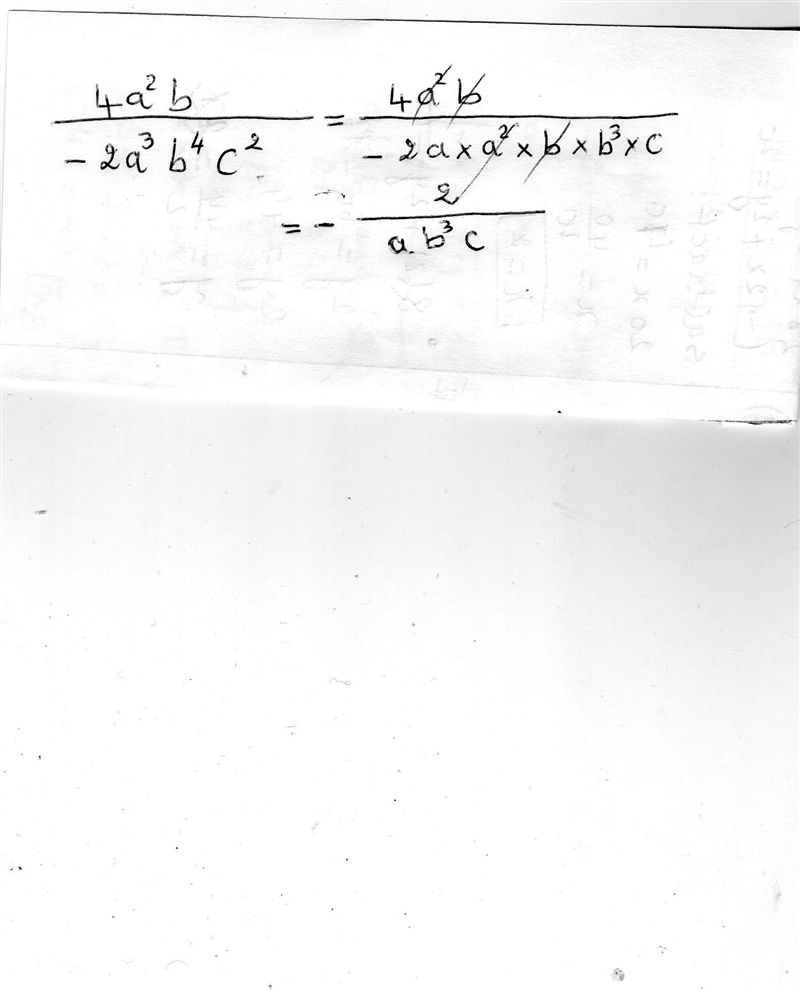 4a²b / -2a³b⁴c² = 4a²b / -2a×a²×b×b³×c
= - 2 / ab³c